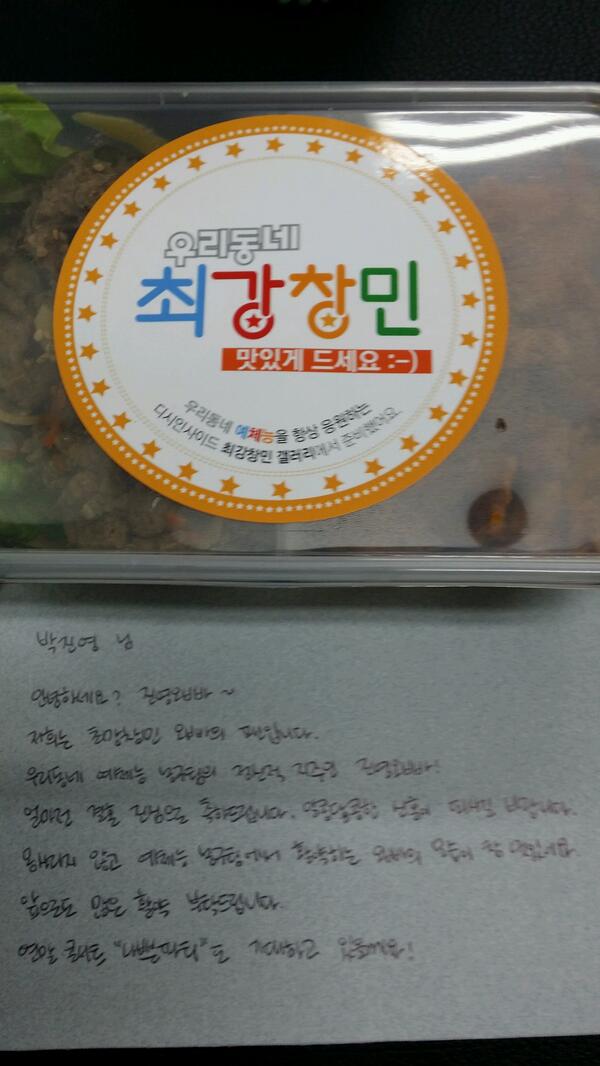 우리동네
최강창민
맛있게 드세요 :-)
우리동네 예체능을 항상 응원하는
디시인사이드 최강창민 갤러리에서 준비했어요.
박진영 님
안녕하세요? 진영오빠~
저희는 최강창민 오빠의 팬입니다.
우리동네 예체능 농구팀의 정신적 지주인 진영오빠!
얼마전 결혼 진심으로 축하드립니다. 알콩달콩한 신혼이 되시길 바랍니다.
않고 예체능 농구팀에서 활약하는 오빠의 모습이 참 멋있어요.
앞으로도 많은 활약 부탁드립니다.
연말 콘서트 "나쁜파티"도 기대하고 있을게요!